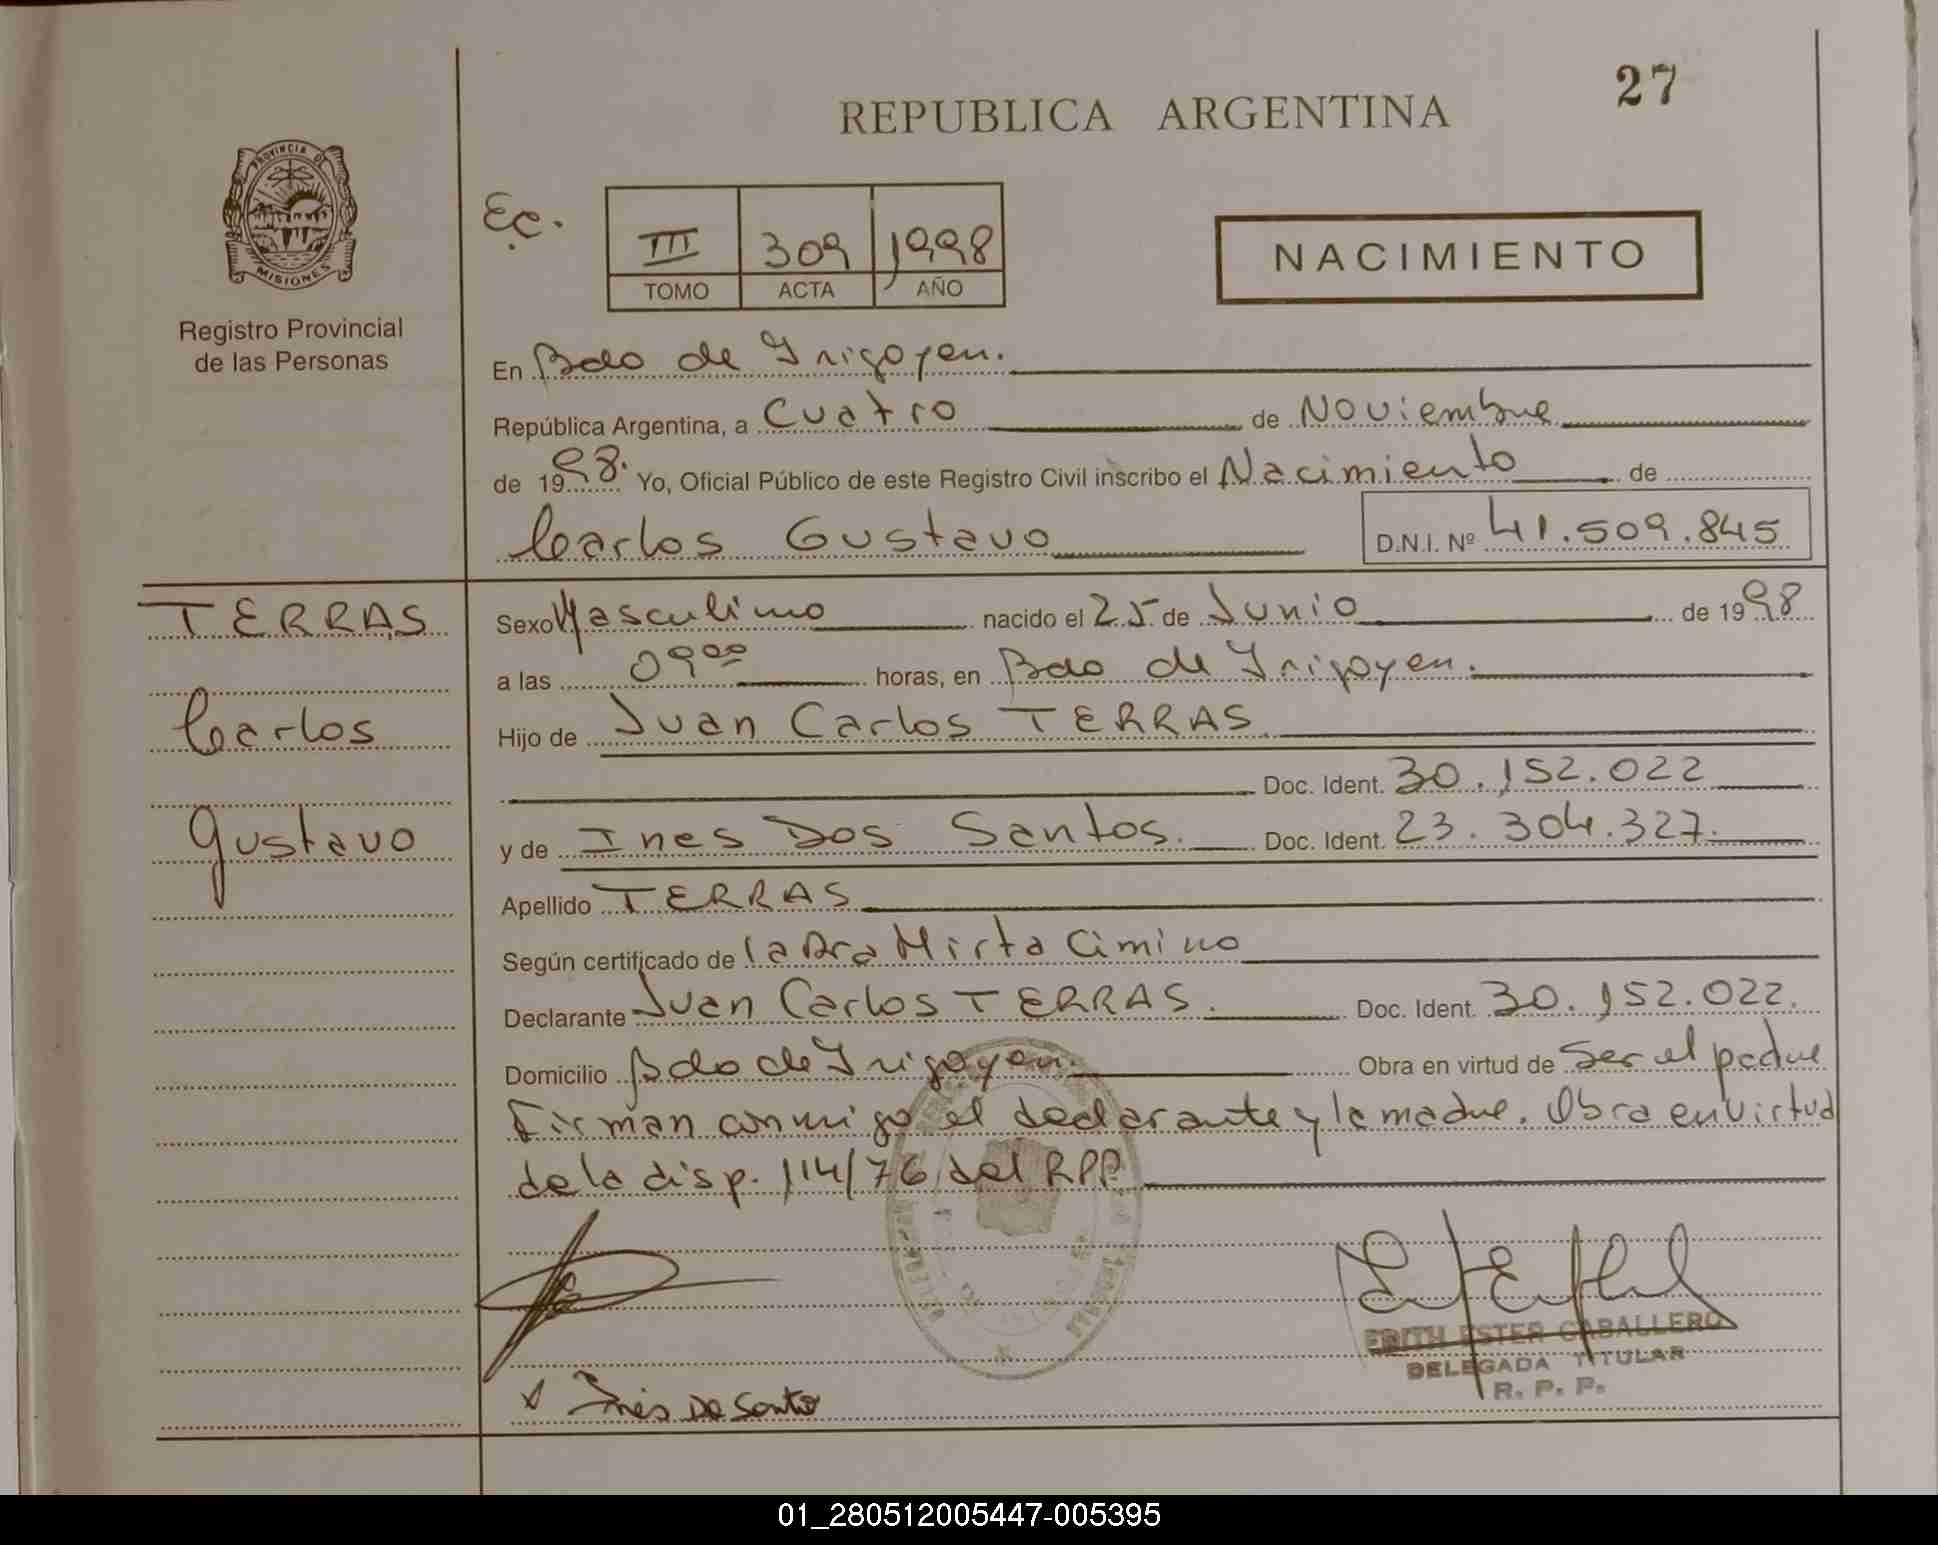 27
REPUBLICA ARGENTINA
PROVINCIA DE
MISIONES
Registro Provincial
de las Personas
Ec.
III 309 1998
TOMO ACTA AÑO
NACIMIENTO
En Bdo de Irigoyen.
República Argentina, a Cuatro de Noviembre
de 1998. Yo, Oficial Público de este Registro Civil inscribo el Nacimiento de
Carlos Gustavo D.N.I. Nº 41.509.845
TERRAS
Carlos
Gustavo
Sexo Masculino nacido el 25 de Junio de 1998
a las 09⁰⁰ horas, en Bdo de Irigoyen.
Hijo de Juan Carlos TERRAS
Doc. Ident. 30.152.022
y de Ines Dos Santos. Doc. Ident. 23.304.327.
Apellido TERRAS
Según certificado de la Dra Mirta Cimino
Declarante Juan Carlos TERRAS. Doc. Ident. 30.152.022.
Domicilio Bdo de Irigoyen. Obra en virtud de Ser el padre
Firman conmigo el declarante y la madre. Obra en virtud
de la disp. 114/76 del RPP.
EDITH ESTER CABALLERO
DELEGADA TITULAR
R. P. P.
Inés Do Santo
01_280512005447-005395